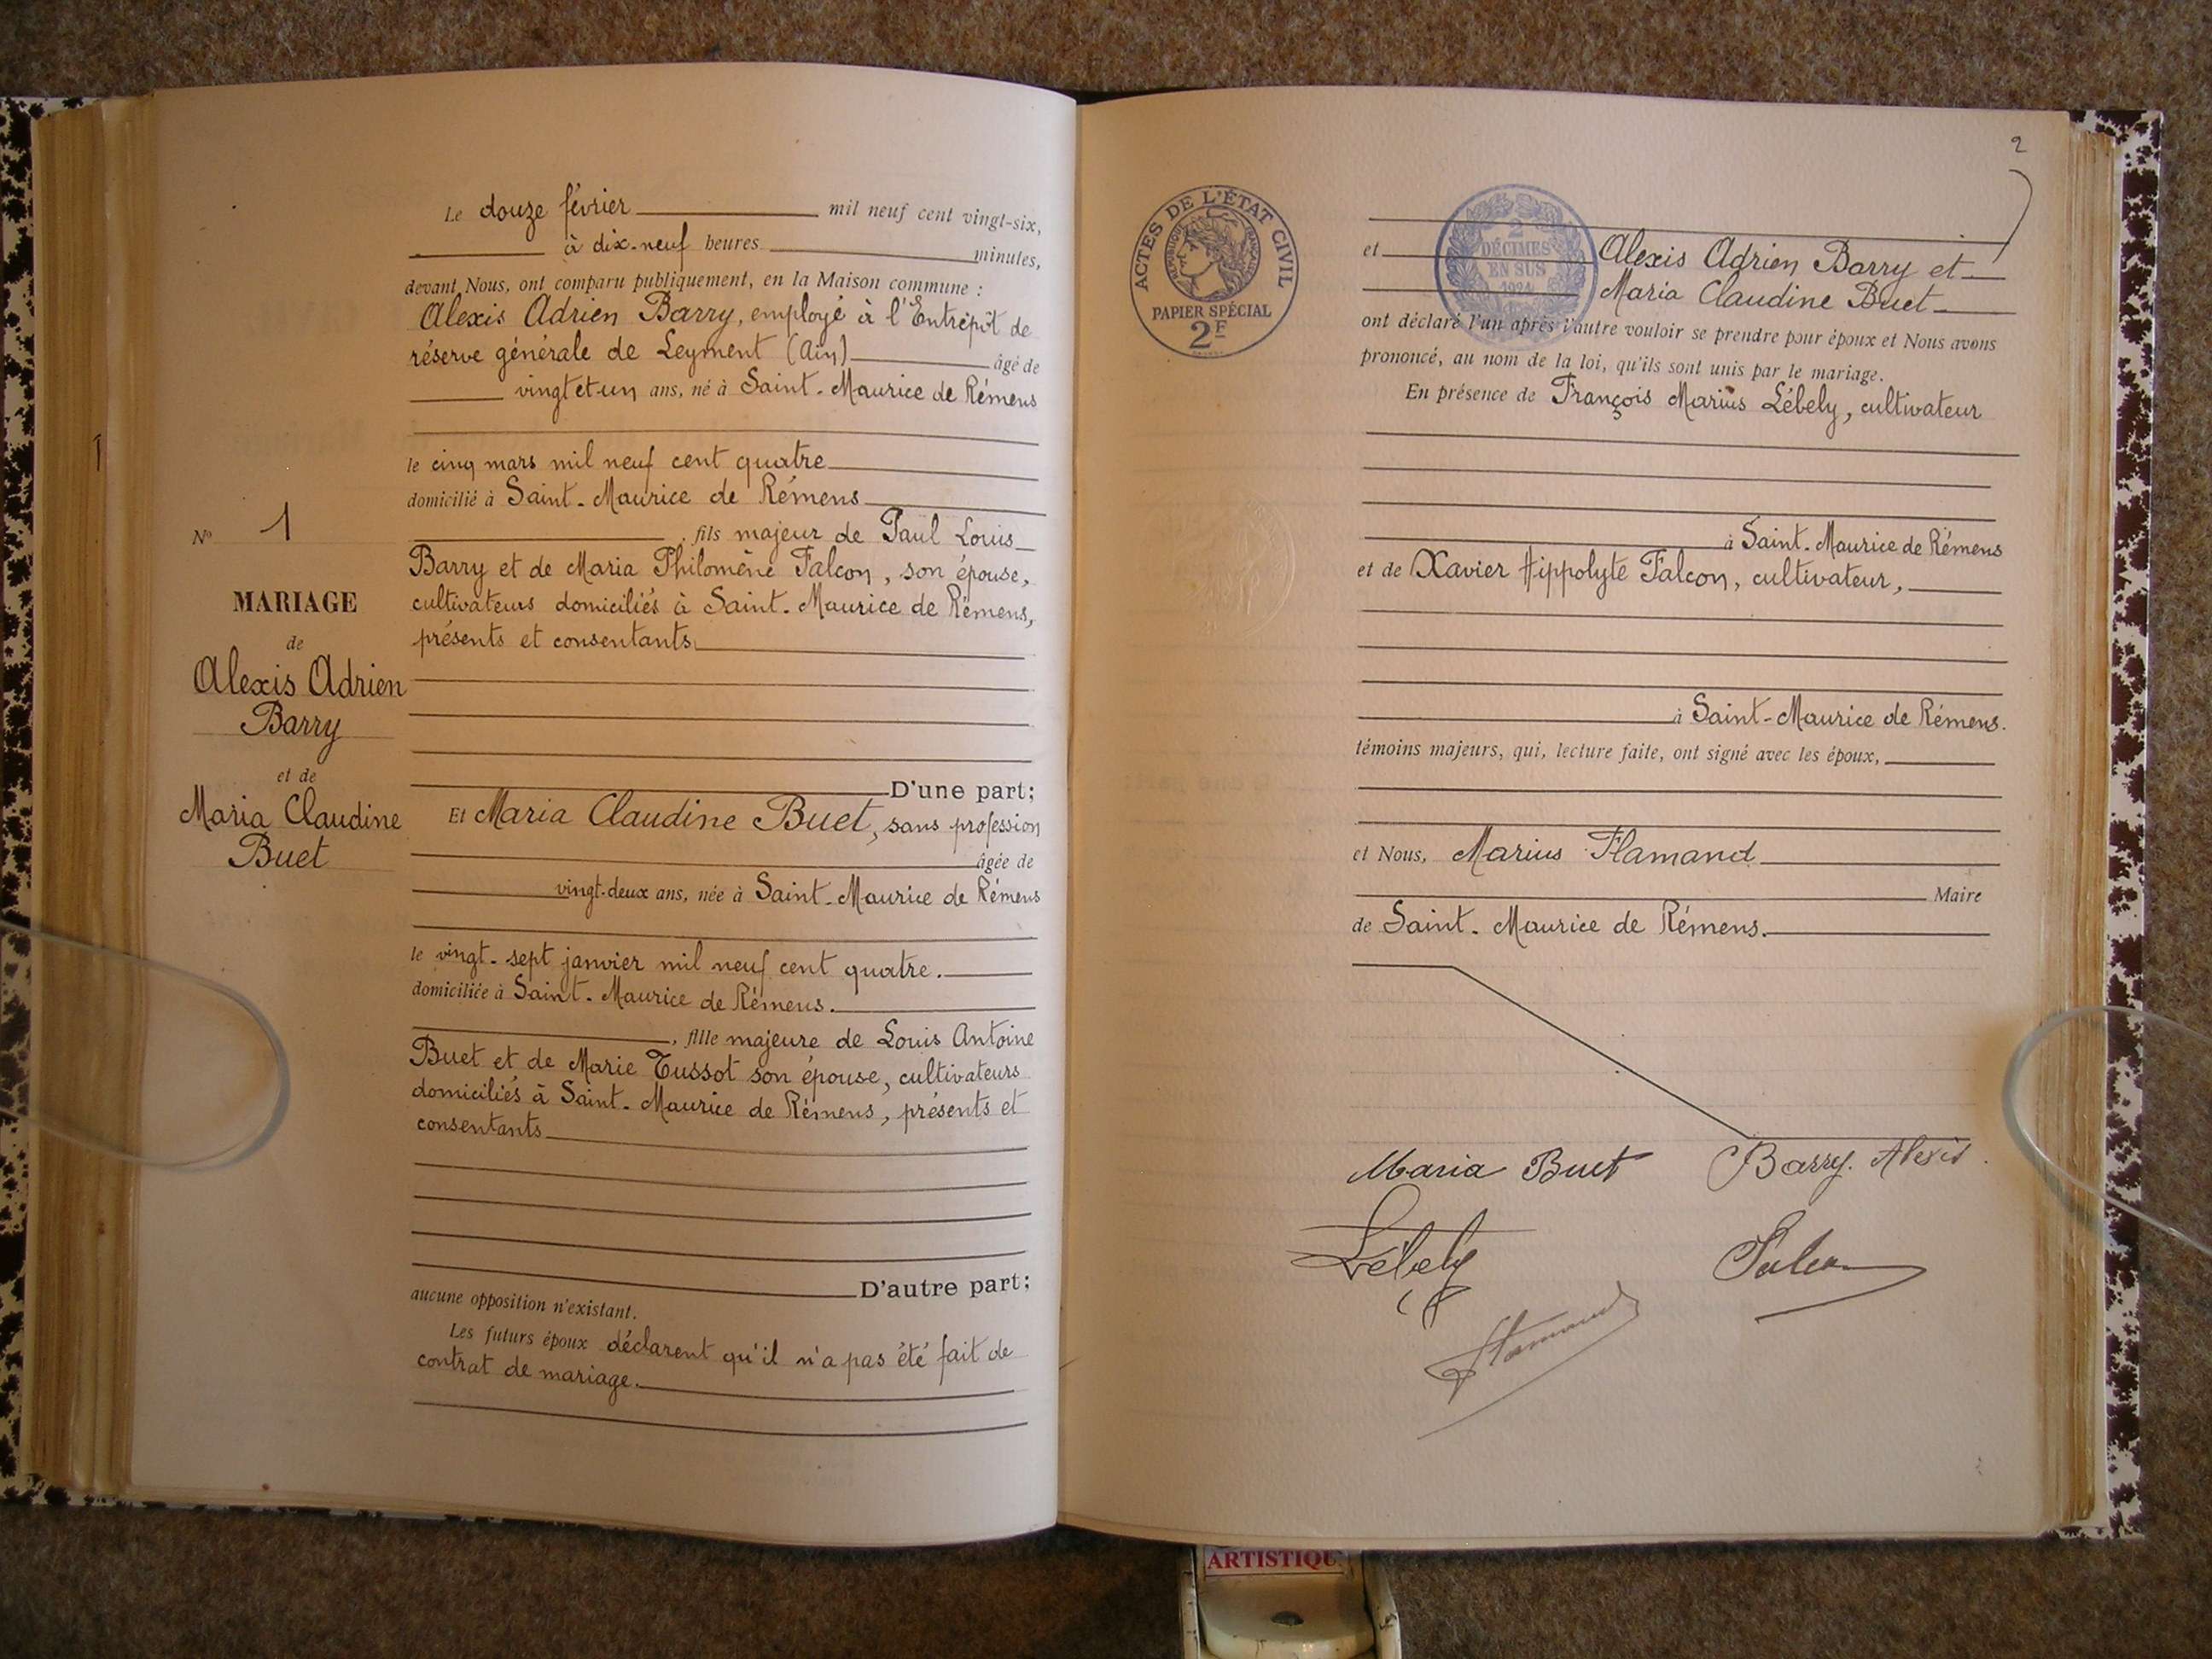 Le douze février mil neuf cent vingt-six,
à dix-neuf heures minutes,
devant Nous, ont comparu publiquement, en la Maison commune :
Alexis Adrien Barry, employé à l'Entrepôt de
réserve générale de Leyment (Ain) âgé de
vingt et un ans, né à Saint-Maurice de Rémens
le cinq mars mil neuf cent quatre
domicilié à Saint-Maurice de Rémens
, fils majeur de Paul Louis
Barry et de Maria Philomène Falcon, son épouse,
cultivateurs domiciliés à Saint-Maurice de Rémens,
présents et consentants
D'une part;
Et Maria Claudine Buet, sans profession
âgée de
vingt-deux ans, née à Saint-Maurice de Rémens
le vingt-sept janvier mil neuf cent quatre.
domiciliée à Saint-Maurice de Rémens.
, fille majeure de Louis Antoine
Buet et de Marie Tussot son épouse, cultivateurs
domiciliés à Saint-Maurice de Rémens, présents et
consentants
D'autre part;
aucune opposition n'existant.
Les futurs époux déclarent qu'il n'a pas été fait de
contrat de mariage.
No 1
MARIAGE
de
Alexis Adrien
Barry
et de
Maria Claudine
Buet
1
2
ACTES DE L'ÉTAT CIVIL
RÉPUBLIQUE FRANÇAISE
PAPIER SPÉCIAL
2F
2
DÉCIMES
EN SUS
1924
et Alexis Adrien Barry et
Maria Claudine Buet
ont déclaré l'un après l'autre vouloir se prendre pour époux et Nous avons
prononcé, au nom de la loi, qu'ils sont unis par le mariage.
En présence de François Marius Lébely, cultivateur
à Saint-Maurice de Rémens
et de Xavier Hippolyte Falcon, cultivateur,
à Saint-Maurice de Rémens.
témoins majeurs, qui, lecture faite, ont signé avec les époux,
et Nous, Marius Flamand
Maire
de Saint-Maurice de Rémens.
Maria Buet Barry. Alexis
Lébely Falcon
Flamand
ARTISTIQU